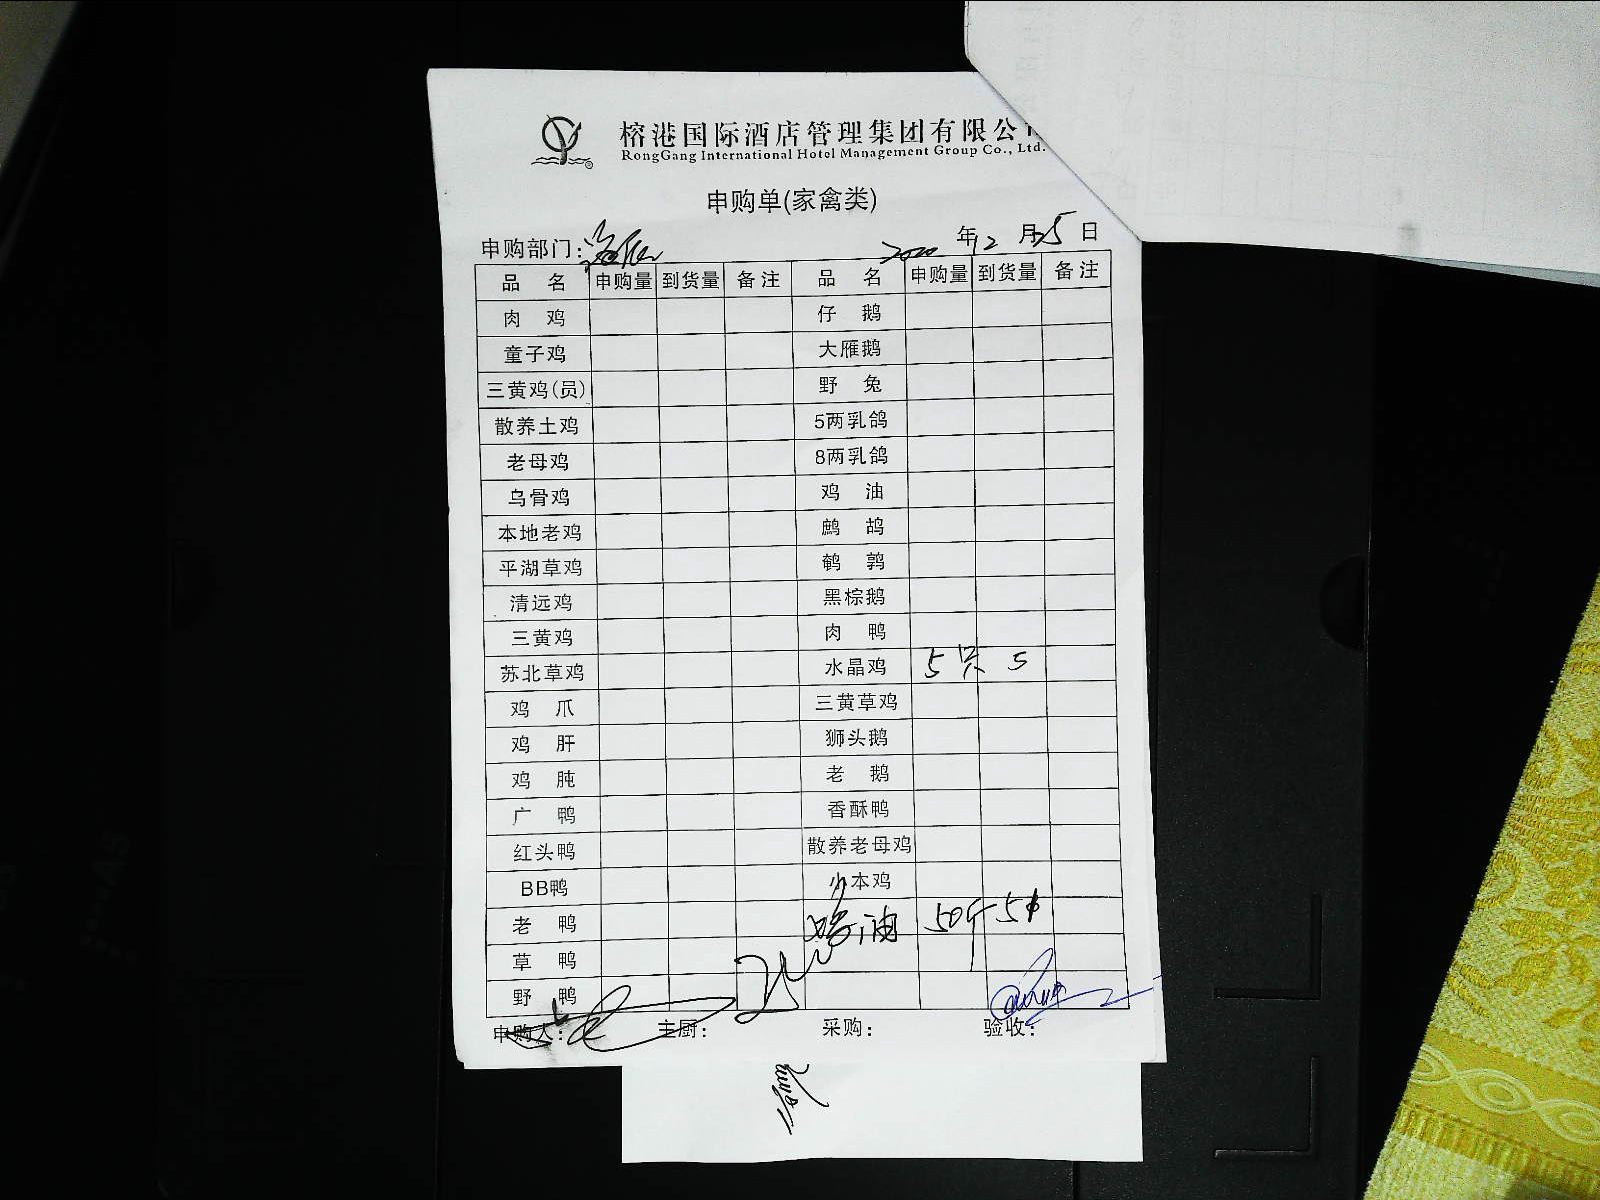 榕港国际酒店管理集团有限公
RongGang International Hotel Management Group Co., Ltd.
申购单(家禽类)
申购部门: 2020 年 12 月 25 日
品 名 申购量 到货量 备注 品 名 申购量 到货量 备注
肉 鸡 仔 鹅
童子鸡 大雁鹅
三黄鸡(员) 野 兔
散养土鸡 5两乳鸽
老母鸡 8两乳鸽
乌骨鸡 鸡 油
本地老鸡 鹧 鸪
平湖草鸡 鹌 鹑
清远鸡 黑棕鹅
三黄鸡 肉 鸭
苏北草鸡 水晶鸡 5只 5
鸡 爪 三黄草鸡
鸡 肝 狮头鹅
鸡 肫 老 鹅
广 鸭 香酥鸭
红头鸭 散养老母鸡
BB鸭 小本鸡
老 鸭 鸡油 50斤
草 鸭
野 鸭
申购人: 主厨: 采购: 验收: